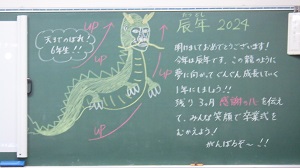 天までのぼれ!
6年生!!
up
up
up
up
up
辰年 2024
明けましておめでとうございます!
今年は辰年です。この龍のように
夢に向かってぐんぐん成長していく
1年にしましょう!!
残り3ヵ月 感謝の心を伝え
て、みんな笑顔で卒業式を
むかえよう!
がんばるぞ〜!!